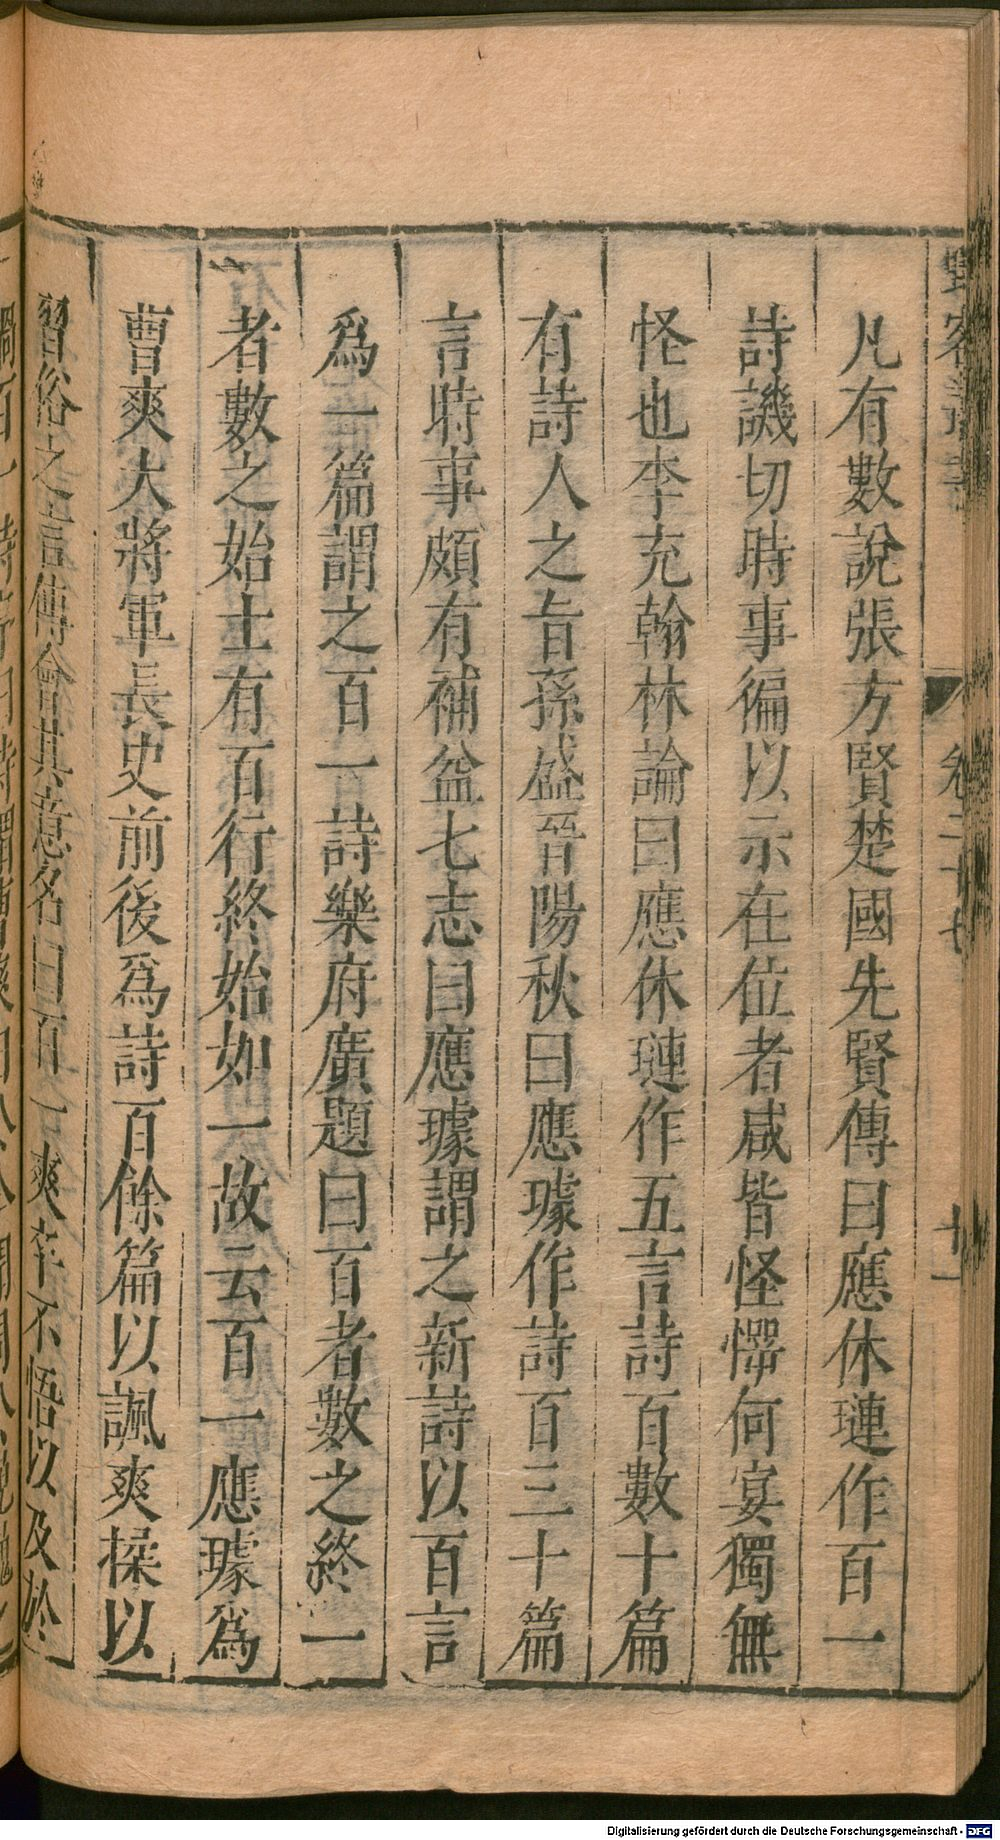 凡有數說張方賢楚國先賢傳曰應休璉作百一
詩譏切時事徧以示在位者咸皆怪愕何宴獨無
怪也李充翰林論曰應休璉作五言詩百數十篇
有詩人之旨孫盛晉陽秋曰應璩作詩百三十篇
言時事頗有補益七志曰應璩謂之新詩以百言
爲一篇謂之百一詩樂府廣題曰百者數之終一
者數之始士有百行終始如一故云百一應璩爲
曹爽大將軍長史前後爲詩百餘篇以諷爽揉以
習俗之言傳會其意名曰百一爽卒不悟以及於
Digitalisierung gefördert durch die Deutsche Forschungsgemeinschaft - DFG